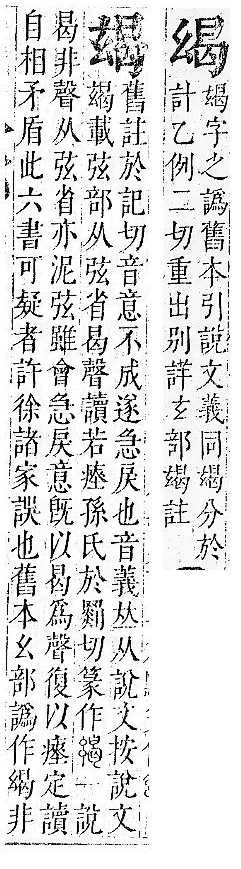 字之譌舊本引說文義同分於
計乙例二切重出別詳玄部註
舊註於記切音意不成遂急戾也音義𠀤从說文按說文
載弦部从弦省曷聲讀若瘞孫氏於罽切篆作一說
曷非聲从弦省亦泥弦雖會急戾意旣以曷爲聲復以瘞定讀
自相矛盾此六書可疑者許徐諸家誤也舊本幺部譌作非